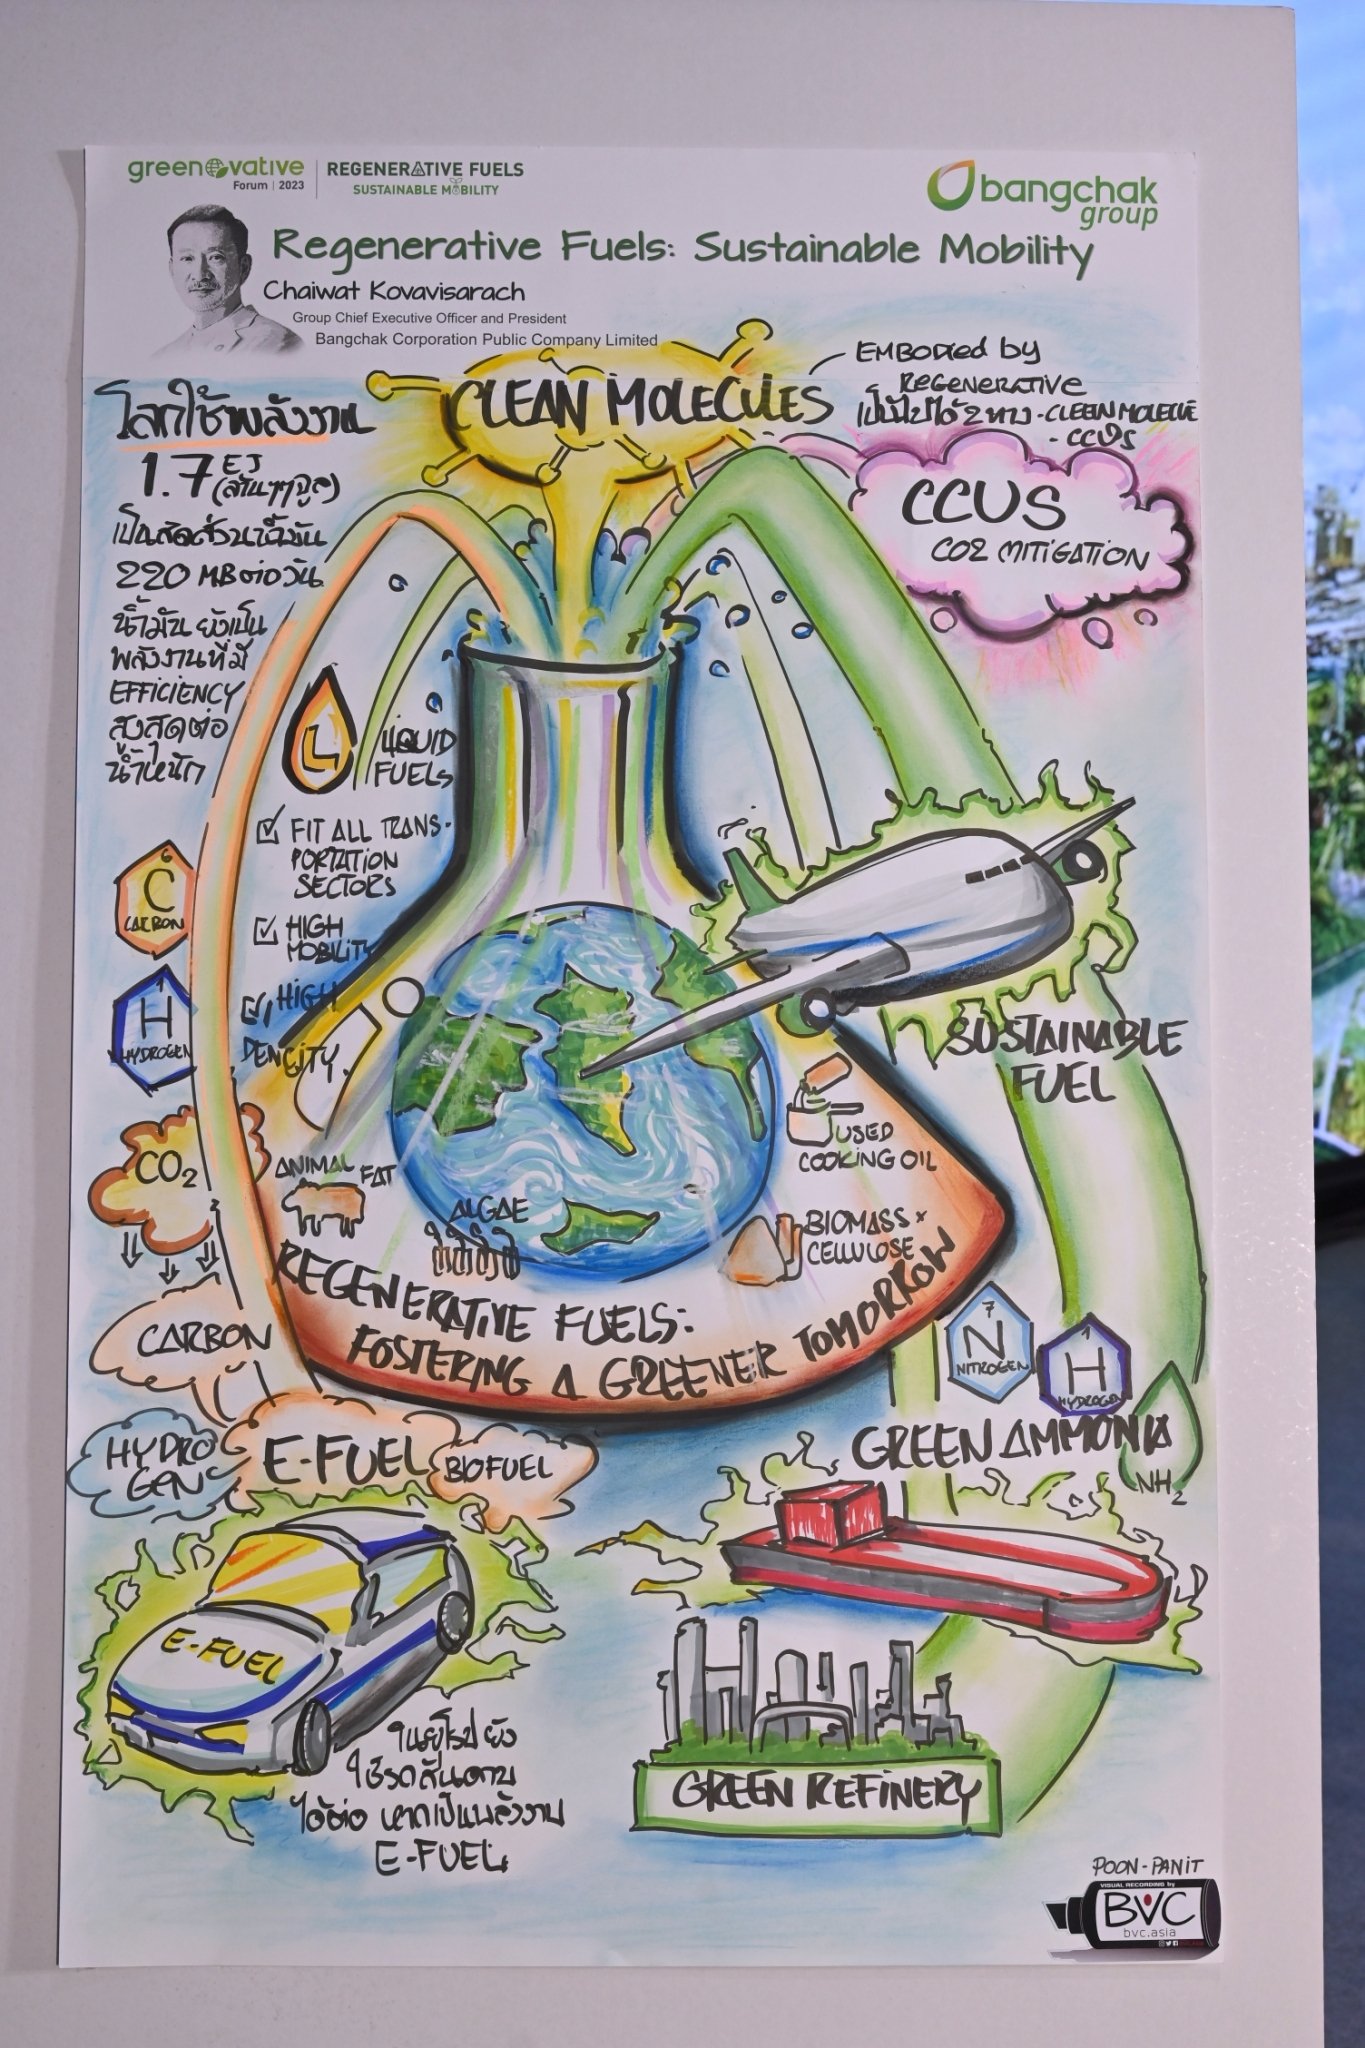 greenovative
Forum | 2023
REGENERATIVE FUELS
SUSTAINABLE MOBILITY
bangchak
group
Regenerative Fuels: Sustainable Mobility
Chaiwat Kovavisarach
Group Chief Executive Officer and President
Bangchak Corporation Public Company Limited
CLEAN MOLECULES
EMBODIED by
REGENERATIVE
เป็นไปได้ 2 ทาง - CLEEN MOLECULE
- CCUS
โลกใช้พลังงาน
1.7 EJ
(ล้านๆๆจูล)
เป็นสัดส่วนน้ำมัน
220 MB ต่อวัน
น้ำมัน ยังเป็น
พลังงานที่มี
EFFICIENCY
สูงสุดต่อ
น้ำหนัก
CCUS
CO2 MITIGATION
L
LIQUID
FUELS
FIT ALL TRANS-
PORTATION
SECTORS
HIGH
MOBILITY
HIGH
DENCITY.
6
C
CARBON
1
H
HYDROGEN
CO2
CARBON
HYDRO
GEN
E-FUEL
BIOFUEL
SUSTAINABLE
FUEL
USED
COOKING OIL
ANIMAL FAT
ALGAE
BIOMASS
CELLULOSE
REGENERATIVE FUELS:
FOSTERING A GREENER TOMORROW
7
N
NITROGEN
1
H
HYDROGEN
GREEN AMMONIA
NH2
E-FUEL
ในยุโรป ยัง
ใช้รถสันดาป
ได้ต่อ หากเป็นพลังงาน
E-FUEL
GREEN REFINERY
POON-PANIT
VISUAL RECORDING by
BVC
bvc.asia